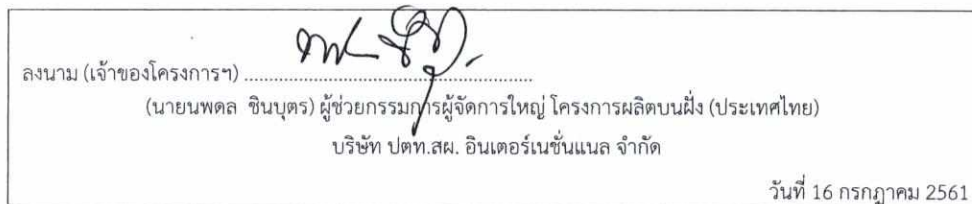 ลงนาม (เจ้าของโครงการฯ) ................................................
(นายนพดล ชินบุตร) ผู้ช่วยกรรมการผู้จัดการใหญ่ โครงการผลิตบนฝั่ง (ประเทศไทย)
บริษัท ปตท.สผ. อินเตอร์เนชั่นแนล จำกัด
วันที่ 16 กรกฎาคม 2561